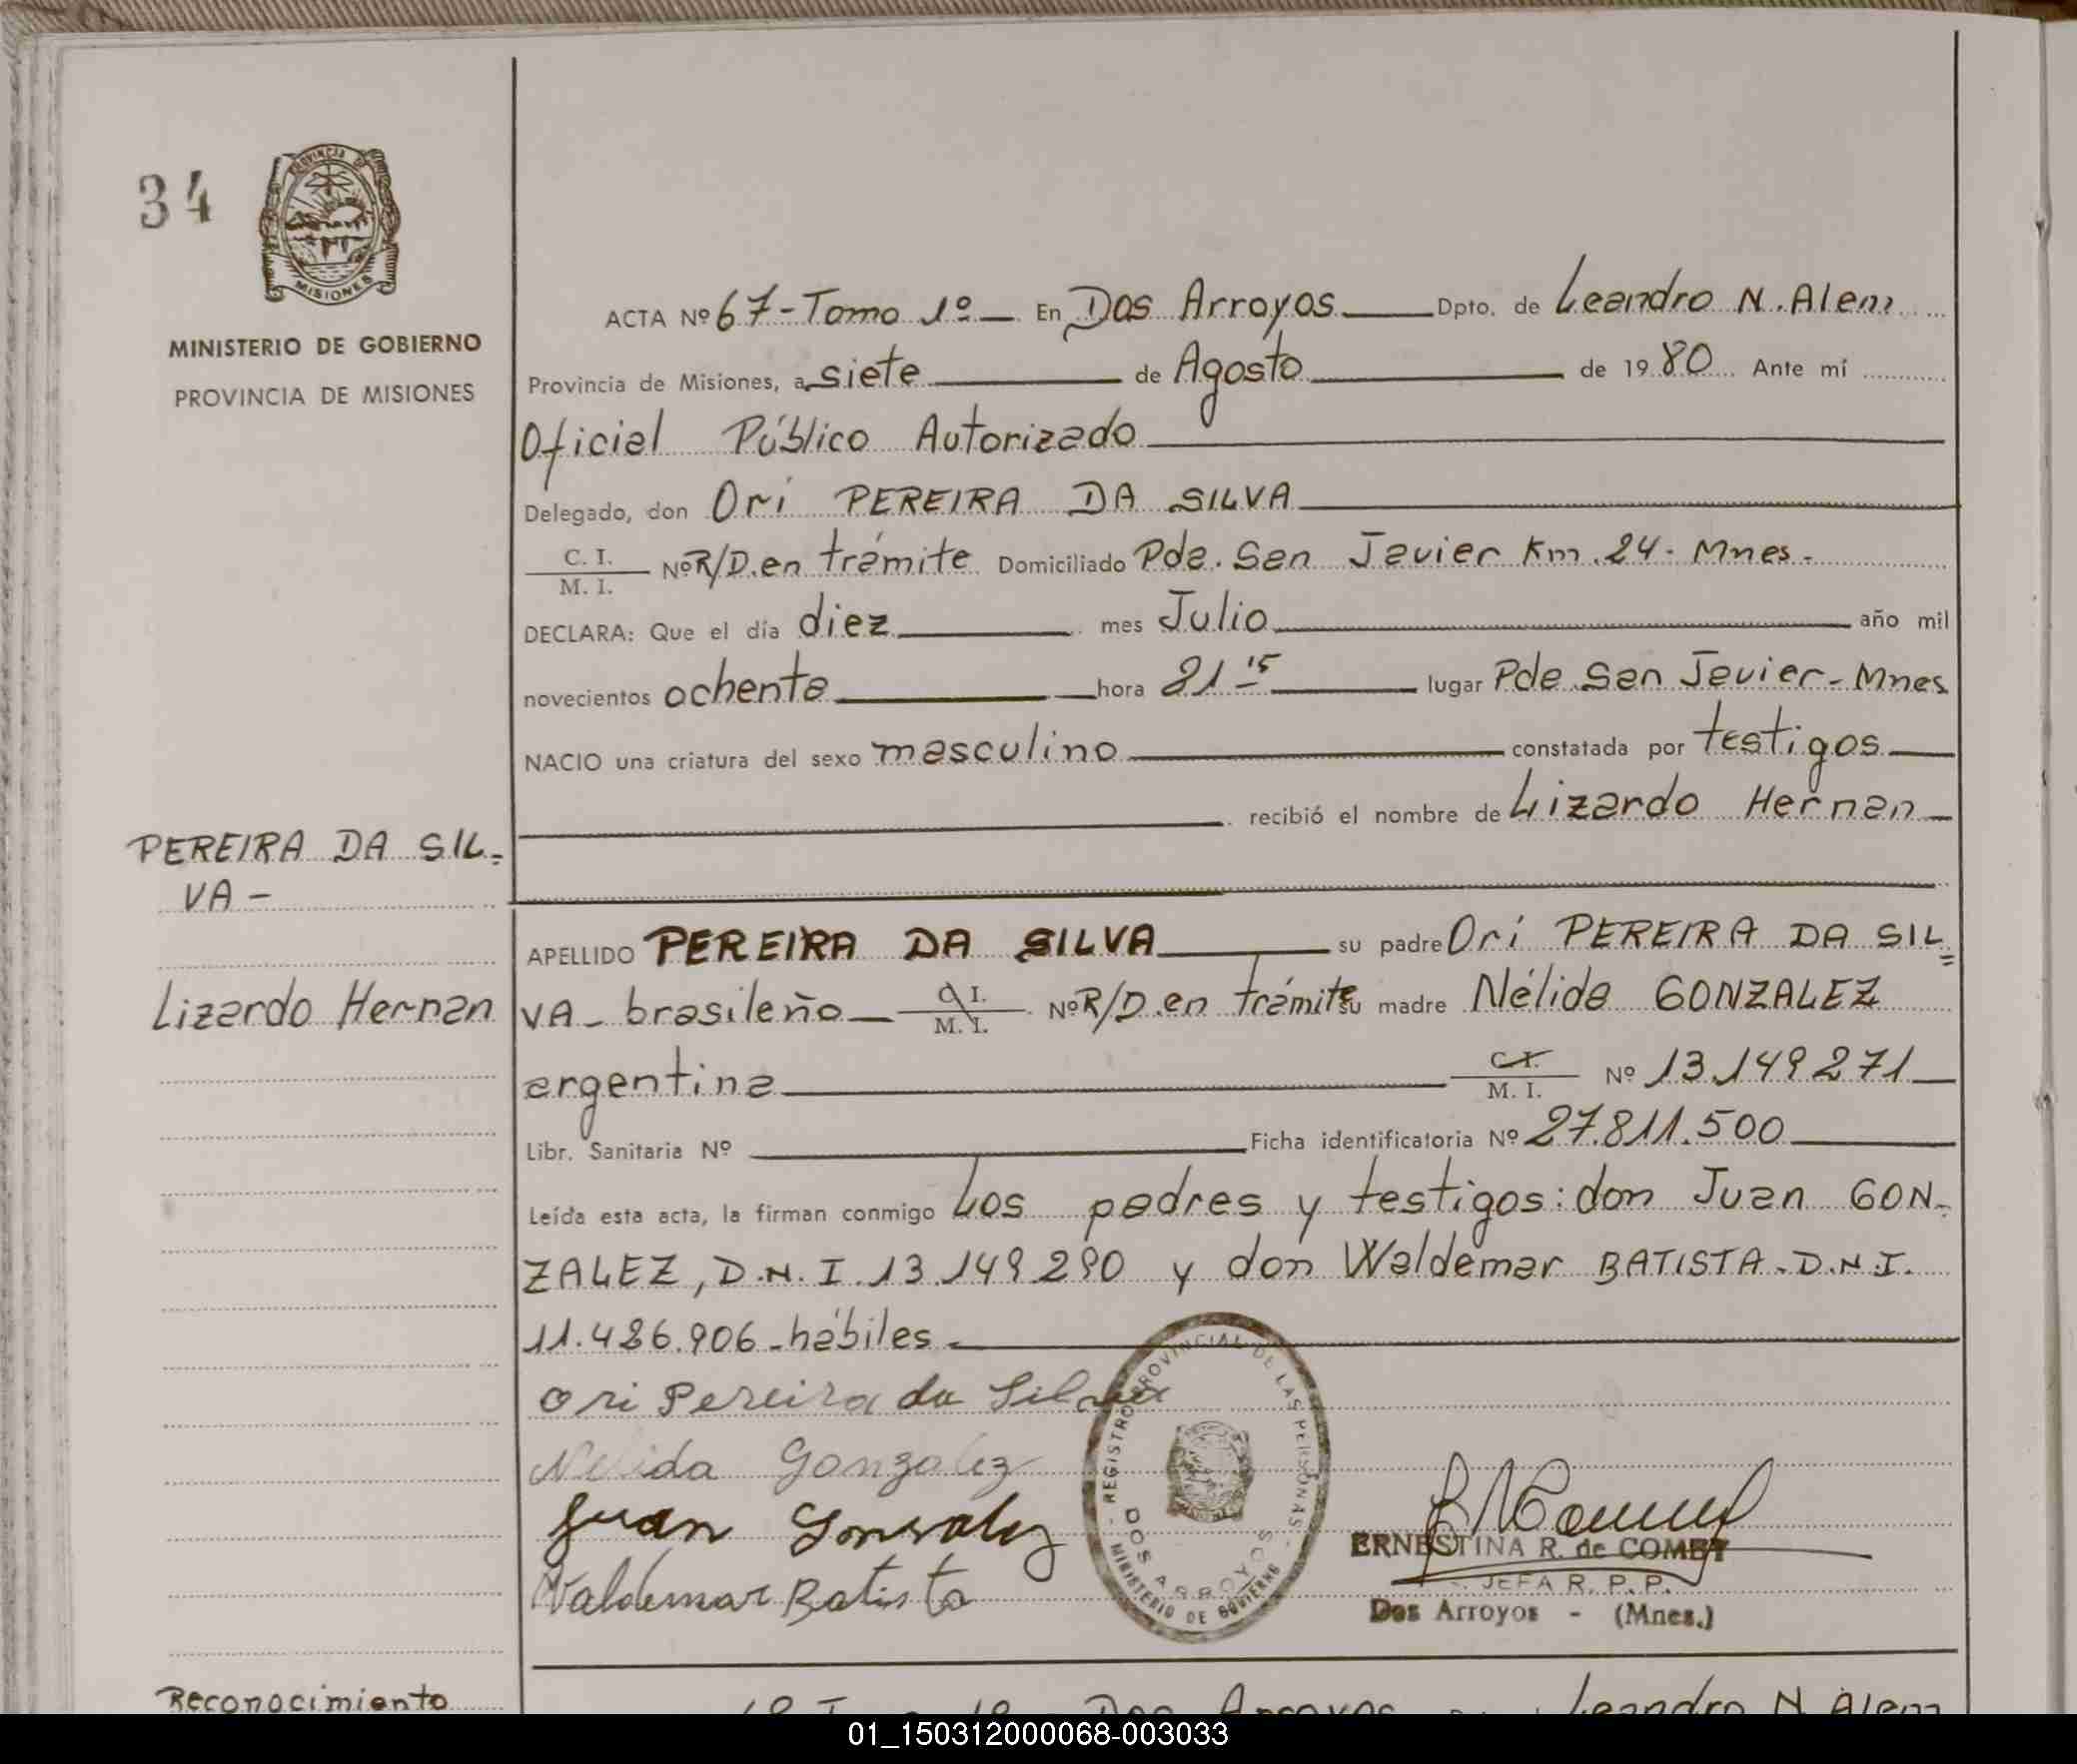 34
PROVINCIA DE
MISIONES
MINISTERIO DE GOBIERNO
PROVINCIA DE MISIONES
ACTA Nº 67 - Tomo 1º - En Dos Arroyos Dpto. de Leandro N. Alem
Provincia de Misiones, a siete de Agosto de 1980 Ante mí
Oficial Público Autorizado
Delegado, don Ori PEREIRA DA SILVA
C. I.
M. I. Nº R/D. en trámite Domiciliado Pda. San Javier Km. 24 - Mnes -
DECLARA: Que el día diez mes Julio año mil
novecientos ochenta hora 21 15 lugar Pda San Javier - Mnes
NACIO una criatura del sexo masculino constatada por testigos
recibió el nombre de Lizardo Hernan
PEREIRA DA SIL=
VA -
Lizardo Hernan
APELLIDO PEREIRA DA SILVA su padre Ori PEREIRA DA SIL=
VA - brasileño C. I.
M. I. Nº R/D. en trámite su madre Nélida GONZALEZ
argentina C. I.
M. I. Nº 13.149.271
Libr. Sanitaria Nº Ficha identificatoria Nº 27.811.500
Leída esta acta, la firman conmigo Los padres y testigos: don Juan GON-
ZALEZ, D.N.I. 13.149.290 y don Waldemar BATISTA - D.N.I.
11.486.906 - hábiles -
Ori Pereira da Silva
Nelida Gonzalez
Juan Gonzalez
Valdemar Batista
REGISTRO PROVINCIAL DE LAS PERSONAS
DOS ARROYOS
MINISTERIO DE GOBIERNO
ERNESTINA R. de COMBY
JEFA R. P. P.
Dos Arroyos - (Mnes.)
Reconocimiento
Dos Arroyos Leandro N. Alem
01_150312000068-003033